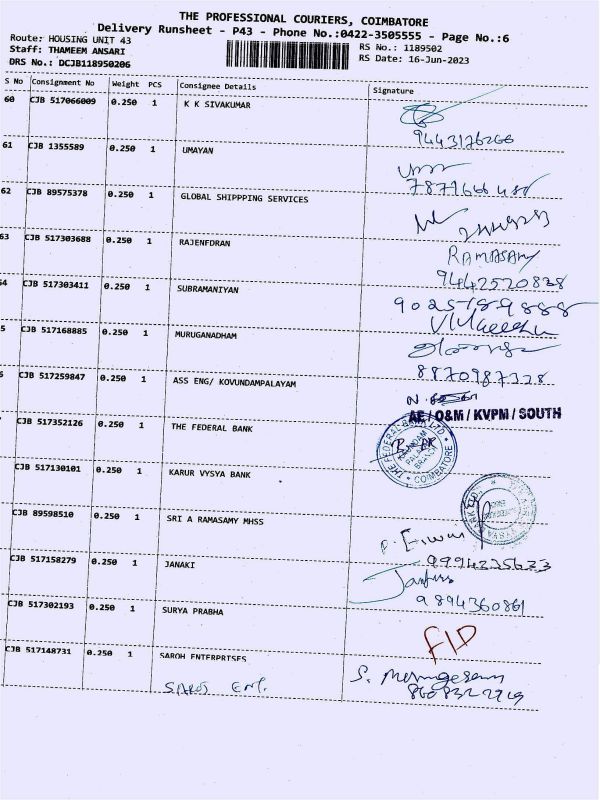 THE PROFESSIONAL COURIERS, COIMBATORE
Delivery Runsheet - P43 - Phone No.:0422-3505555 - Page No.:6
Route: HOUSING UNIT 43
RS No.: 1189502
Staff: THAMEEM ANSARI
RS Date: 16-Jun-2023
DRS No.: DCJB118950206
S No Consignment No Weight PCS Consignee Details Signature
60 CJB 517066009 0.250 1 K K SIVAKUMAR
9443176266
61 CJB 1355589 0.250 1 UMAYAN
62 CJB 89575378 0.250 1 GLOBAL SHIPPPING SERVICES
63 CJB 517303688 0.250 1 RAJENFDRAN
RAMASAMY
9442520838
64 CJB 517303411 0.250 1 SUBRAMANIYAN
9025189888
5 CJB 517168885 0.250 1 MURUGANADHAM
8870987328
6 CJB 517259847 0.250 1 ASS ENG/ KOVUNDAMPALAYAM
AE / O&M / KVPM / SOUTH
CJB 517352126 0.250 1 THE FEDERAL BANK
THE FEDERAL BANK LTD
BRANCH
COIMBATORE
CJB 517130101 0.250 1 KARUR VYSYA BANK
CJB 89598510 0.250 1 SRI A RAMASAMY MHSS
9994235623
CJB 517158279 0.250 1 JANAKI
9894360861
CJB 517302193 0.250 1 SURYA PRABHA
CJB 517148731 0.250 1 SAROH ENTERPRISES
SAROJ ENT.